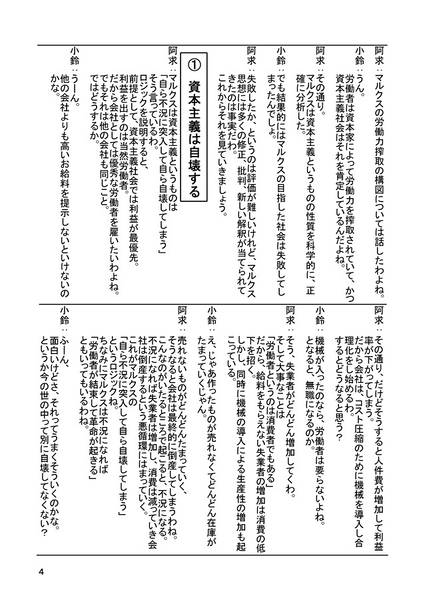 阿求:マルクスの労働力搾取の構図については話したわよね。
小鈴:うん。
労働者は資本家によって労働力を搾取されていて、かつ
資本主義社会はそれを肯定しているんだよね。
阿求:その通り。
マルクスは資本主義というものの性質を科学的に、正
確に分析した。
小鈴:でも結果的にはマルクスの目指した社会は失敗してし
まったんでしょ。
阿求:失敗したか、というのは評価が難しいけれど、マルクス
思想には多くの修正、批判、新しい解釈が当てられて
きたのは事実だわ。
これからそれを見ていきましょう。
① 資本主義は自壊する
阿求:マルクスは資本主義というものは
「自ら不況に突入して自ら自壊してしまう」
そう言っているわ。
ロジックを説明すると、
前提として、資本主義社会では利益が最優先。
利益を出すのは当然労働者。
だから会社としては優秀な労働者を雇いたいわよね。
でもそれは他の会社も同じこと。
ではどうするか。
小鈴:うーん。
他の会社よりも高いお給料を提示しないといけないの
かな。
阿求:その通り、だけどそうすると人件費が増加して利益
率が下がってしまう。
だから会社は、コスト圧縮のために機械を導入し合
理化をし始めるわ。
するとどうなると思う?
小鈴:機械が入ったのなら、労働者は要らないよね。
となると、無職になるのか。
阿求:そう、失業者がどんどん増加してくわ。
そして大事なことは
「労働者というのは消費者でもある」
だから、給料をもらえない失業者の増加は消費の低
下を招く。
しかし、同時に機械の導入による生産性の増加も起
こっている。
小鈴:え、じゃあ作ったものが売れなくてどんどん在庫が
たまっていくじゃん。
阿求:売れないものがどんどんたまっていく、
そうなると会社は最終的に倒産してしまうわね。
こんなのがいたるところで起こると、不況になる。
不況になれば失業者は増加し、消費は減っていき会
社は倒産するという悪循環にはまっていく。
これがマルクスの
「自ら不況に突入して自ら自壊してしまう」
というロジックね。
ちなみにマルクスは不況になれば
「労働者が結束して革命が起きる」
ともいってもいるわね。
小鈴:ふーん、
面白いけどさ、それってうまくそういくのかな。
というか今の世の中って別に自壊してなくない?
4